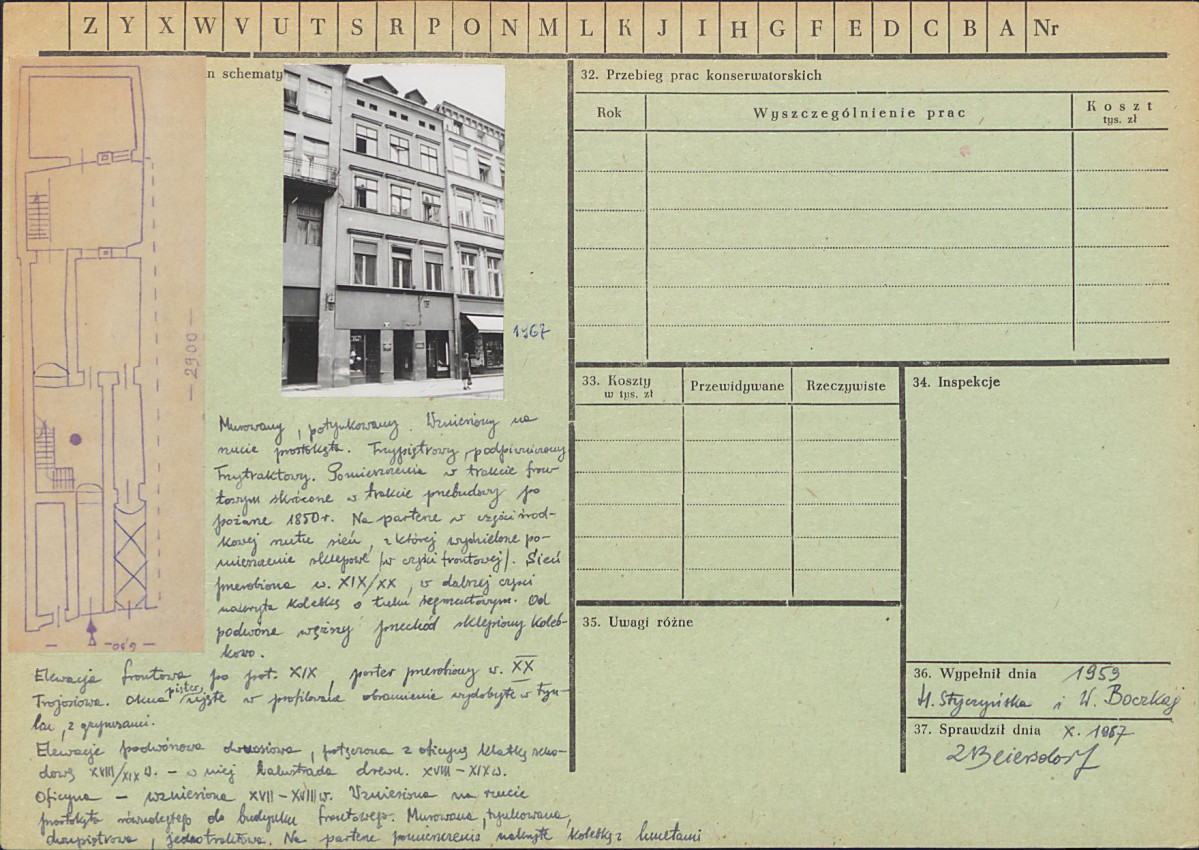 Z Y X W V U T S R P O N M L K J I H G F E D C B A Nr
n schematy
— 2900 —
— 690 —
1967
Murowany, potynkowany. Wzniesiony na
rzucie prostokąta. Trzypiętrowy, podpiwniczony
Trzytraktowy. Pomieszczenia w trakcie fron-
towym skrócone w trakcie przebudowy po
pożarze 1850 r. Na parterze w części środ-
kowej rzutu sień, z której wydzielone po-
mieszczenie sklepowe /w części frontowej/. Sień
przerobiona w. XIX/XX, w dalszej części
nakryta kolebką o łuku segmentowym. Od
podwórza węższy przechód sklepiony koleb-
kowo.
Elewacja frontowa po poł. XIX, parter przerobiony w. XX
Trójosiowa. Okna pięter ujęte w profilowane obramienie wydobyte w tyn-
ku, z gzymsami.
Elewacja podwórzowa dwuosiowa, połączona z oficyną klatką scho-
dową XVIII/XIX w. – w niej balustrada drewn. XVIII – XIX w.
Oficyna – wzniesiona XVII – XVIII w. Wzniesiona na rzucie
prostokąta równoległego do budynku frontowego. Murowana, tynkowana,
dwupiętrowa, jednotraktowa. Na parterze pomieszczenie nakryte kolebką z lunetami
32. Przebieg prac konserwatorskich
Rok Wyszczególnienie prac Koszt
tys. zł
33. Koszty Przewidywane Rzeczywiste
w tys. zł
34. Inspekcje
35. Uwagi różne
36. Wypełnił dnia 1959
H. Styczyńska i W. Boczkaj
37. Sprawdził dnia X. 1967
Z Beiersdorf